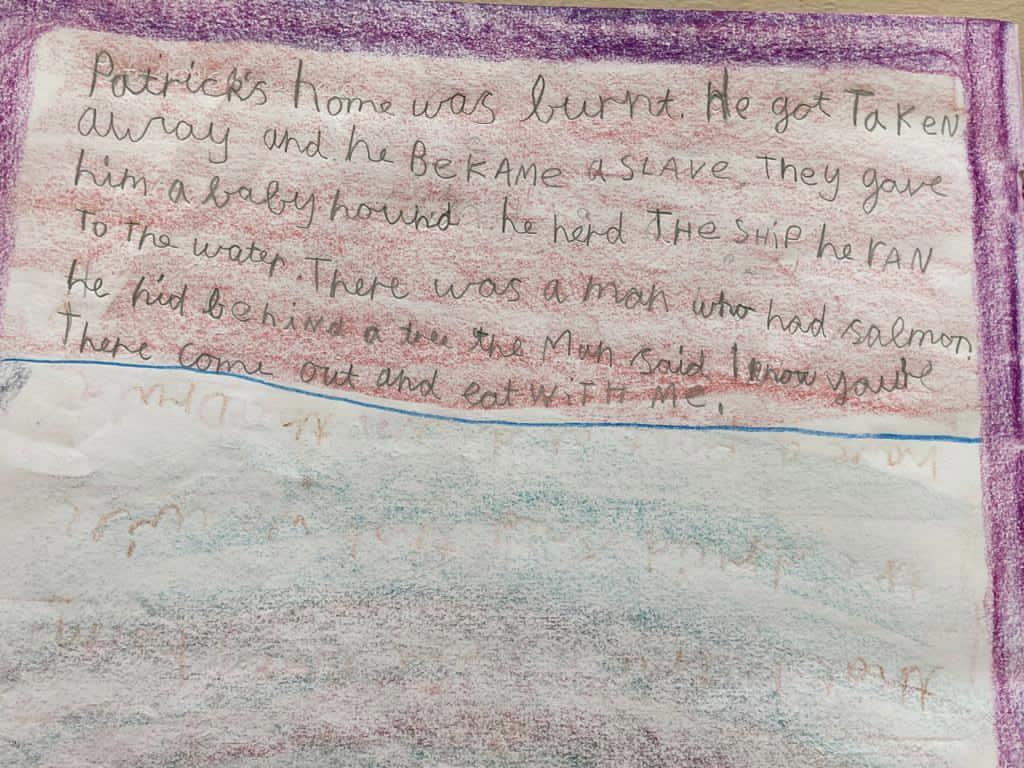 Patrick's home was burnt. He got TaKeN
away and he BeKAMe a SLAVe. They gave
him a baby hound he herd THe SHiP he rAN
To The water. There was a man who had salmon
he hid behiNd a tree the Man said I know you're
There come out and eat WiTH Me.